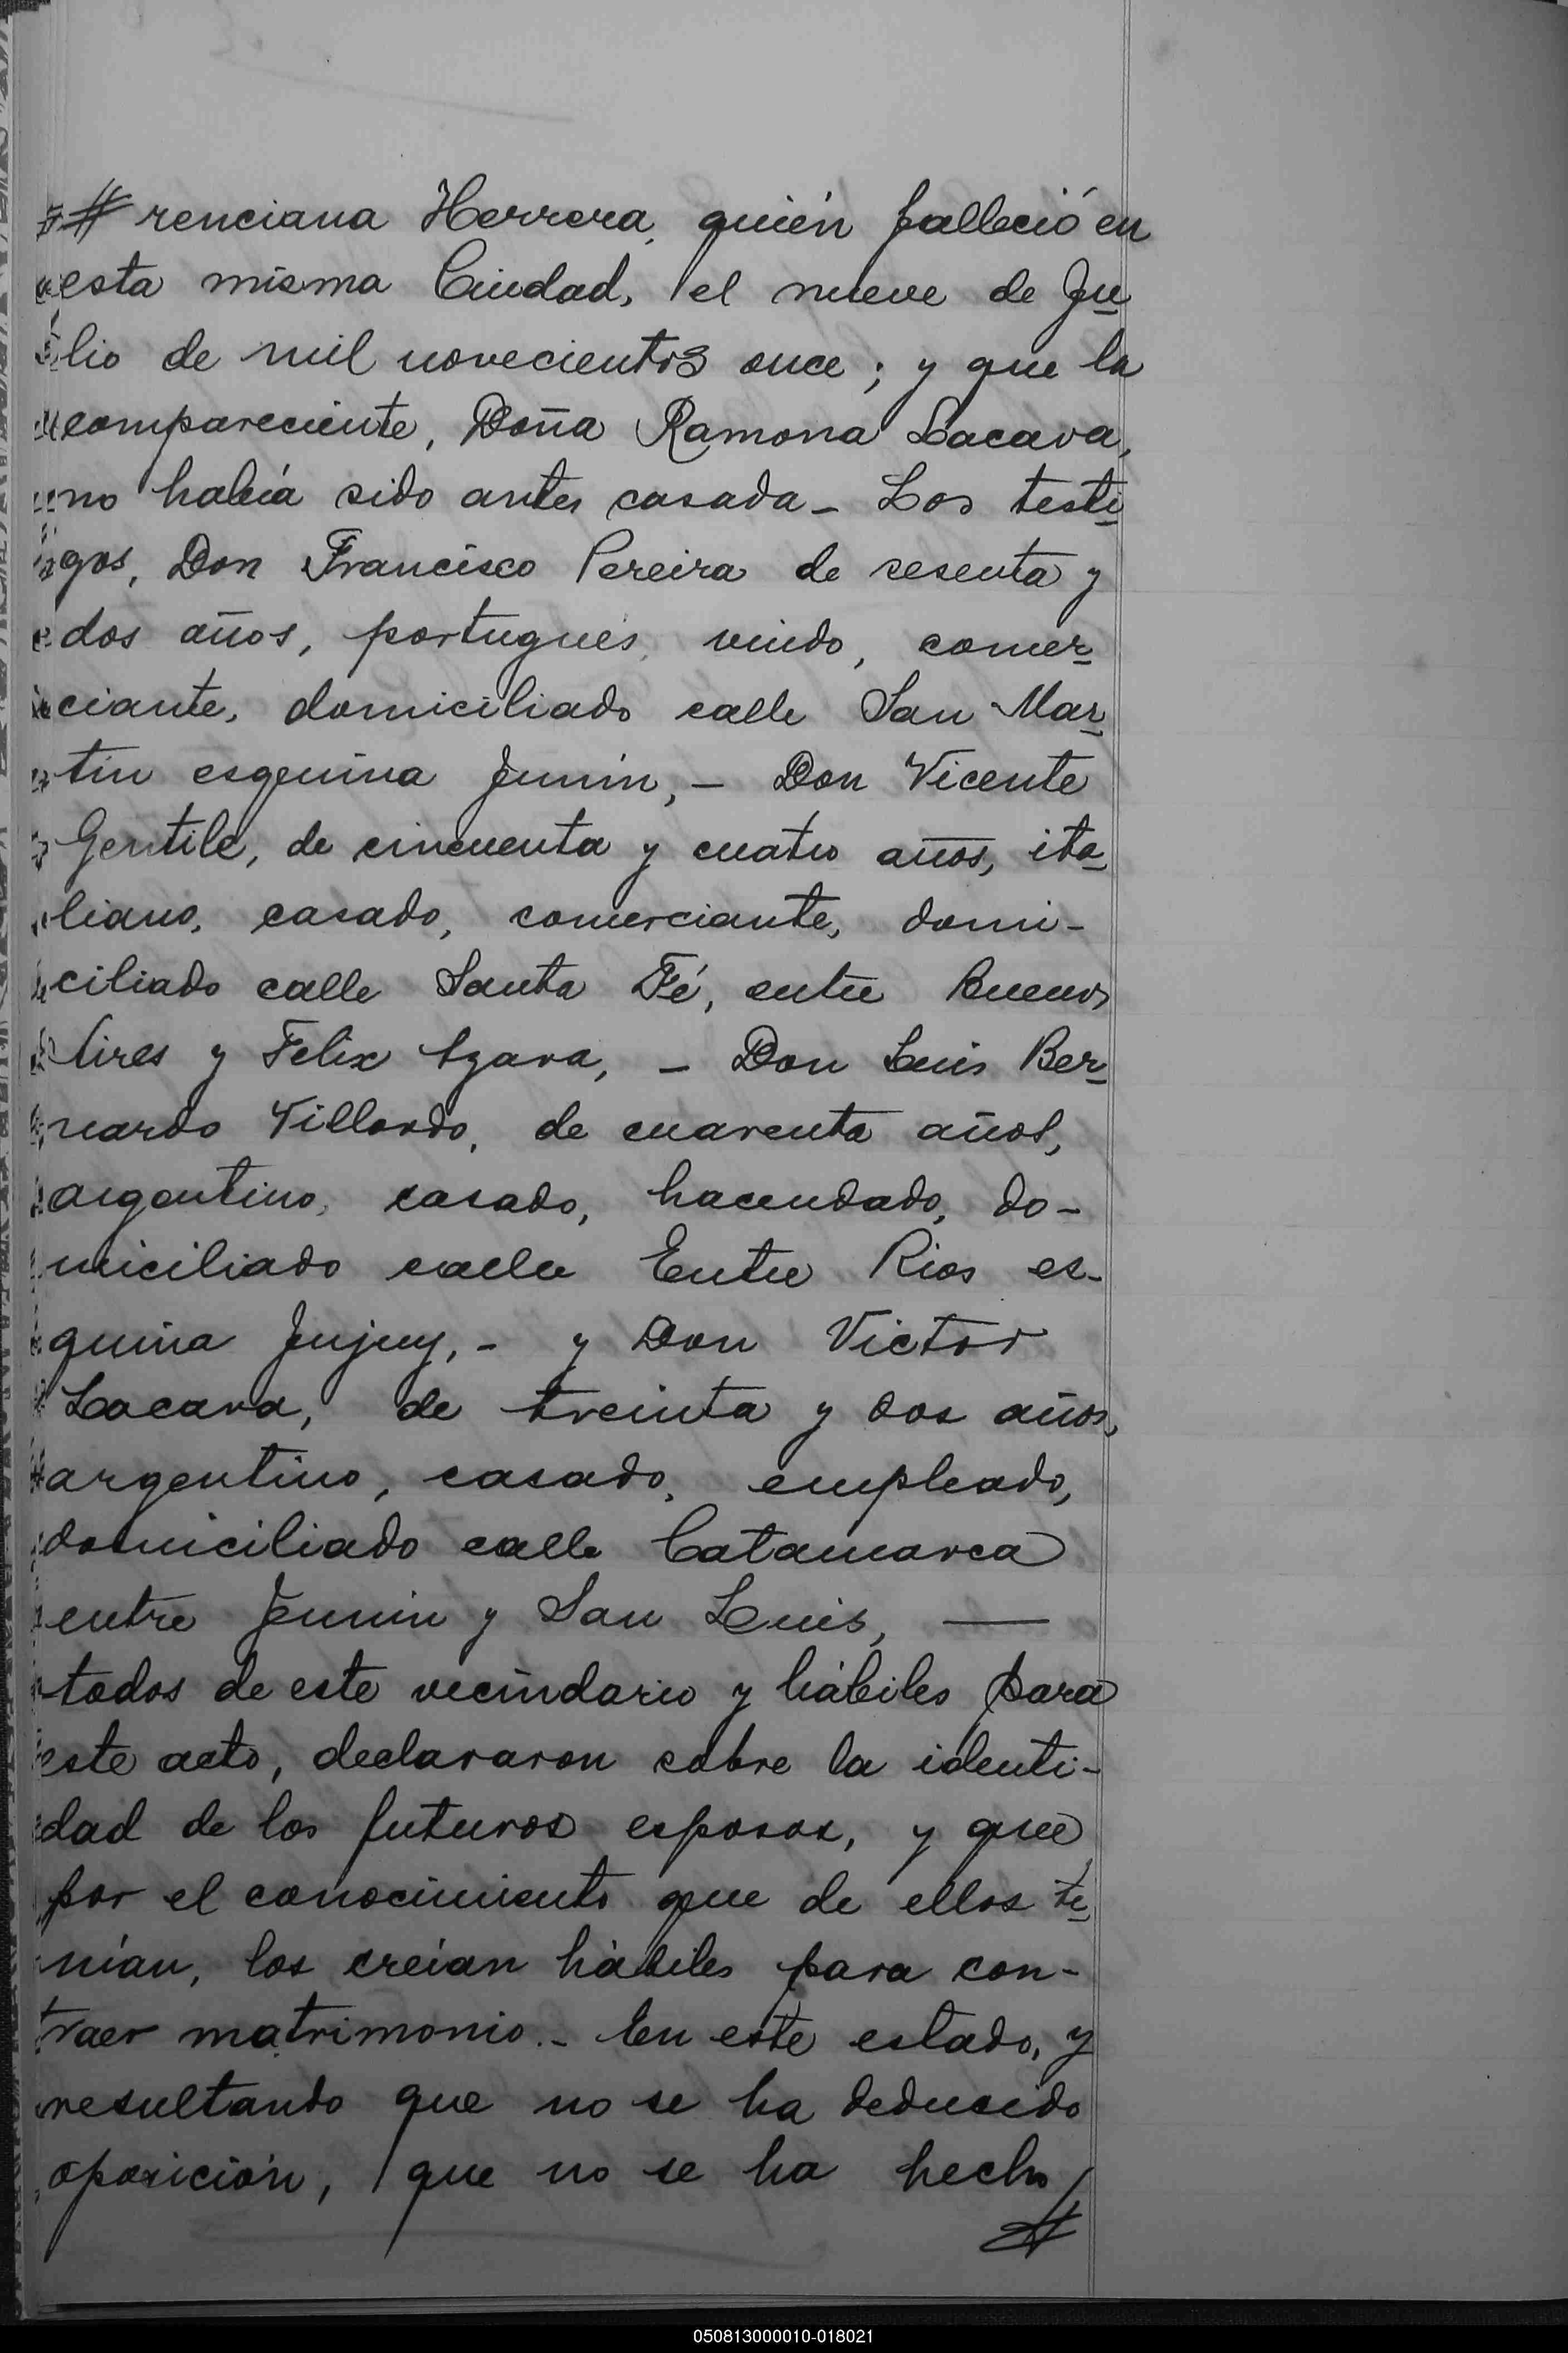 # renciana Herrera, quién falleció en
esta misma Ciudad, el nueve de Ju
lio de mil novecientos once; y que la
compareciente, Doña Ramona Lacava,
no había sido antes casada_ Los testi
gos, Don Francisco Pereira de sesenta y
dos años, portugués, viudo, comer
ciante, domiciliado calle San Mar
tin esquina Junin,_ Don Vicente
Gentile, de cincuenta y cuatro años, ita
liano, casado, comerciante, domi-
ciliado calle Santa Fé, entre Buenos
Aires y Felix Azara, _ Don Luis Ber
nardo Villordo, de cuarenta años,
argentino, casado, hacendado, do-
miciliado calle Entre Rios es-
quina Jujuy,- y Don Victor
Lacava, de treinta y dos años,
argentino, casado, empleado,
domiciliado calle Catamarca
entre Junin y San Luis, —
todos de este vecindario y hábiles para
este acto, declararon sobre la identi-
dad de los futuros esposos, y que
por el conocimiento que de ellos te
nían, los creían hábiles para con-
traer matrimonio._ En este estado, y
resultando que no se ha deducido
oposición, que no se ha hecho
#
050813000010-018021